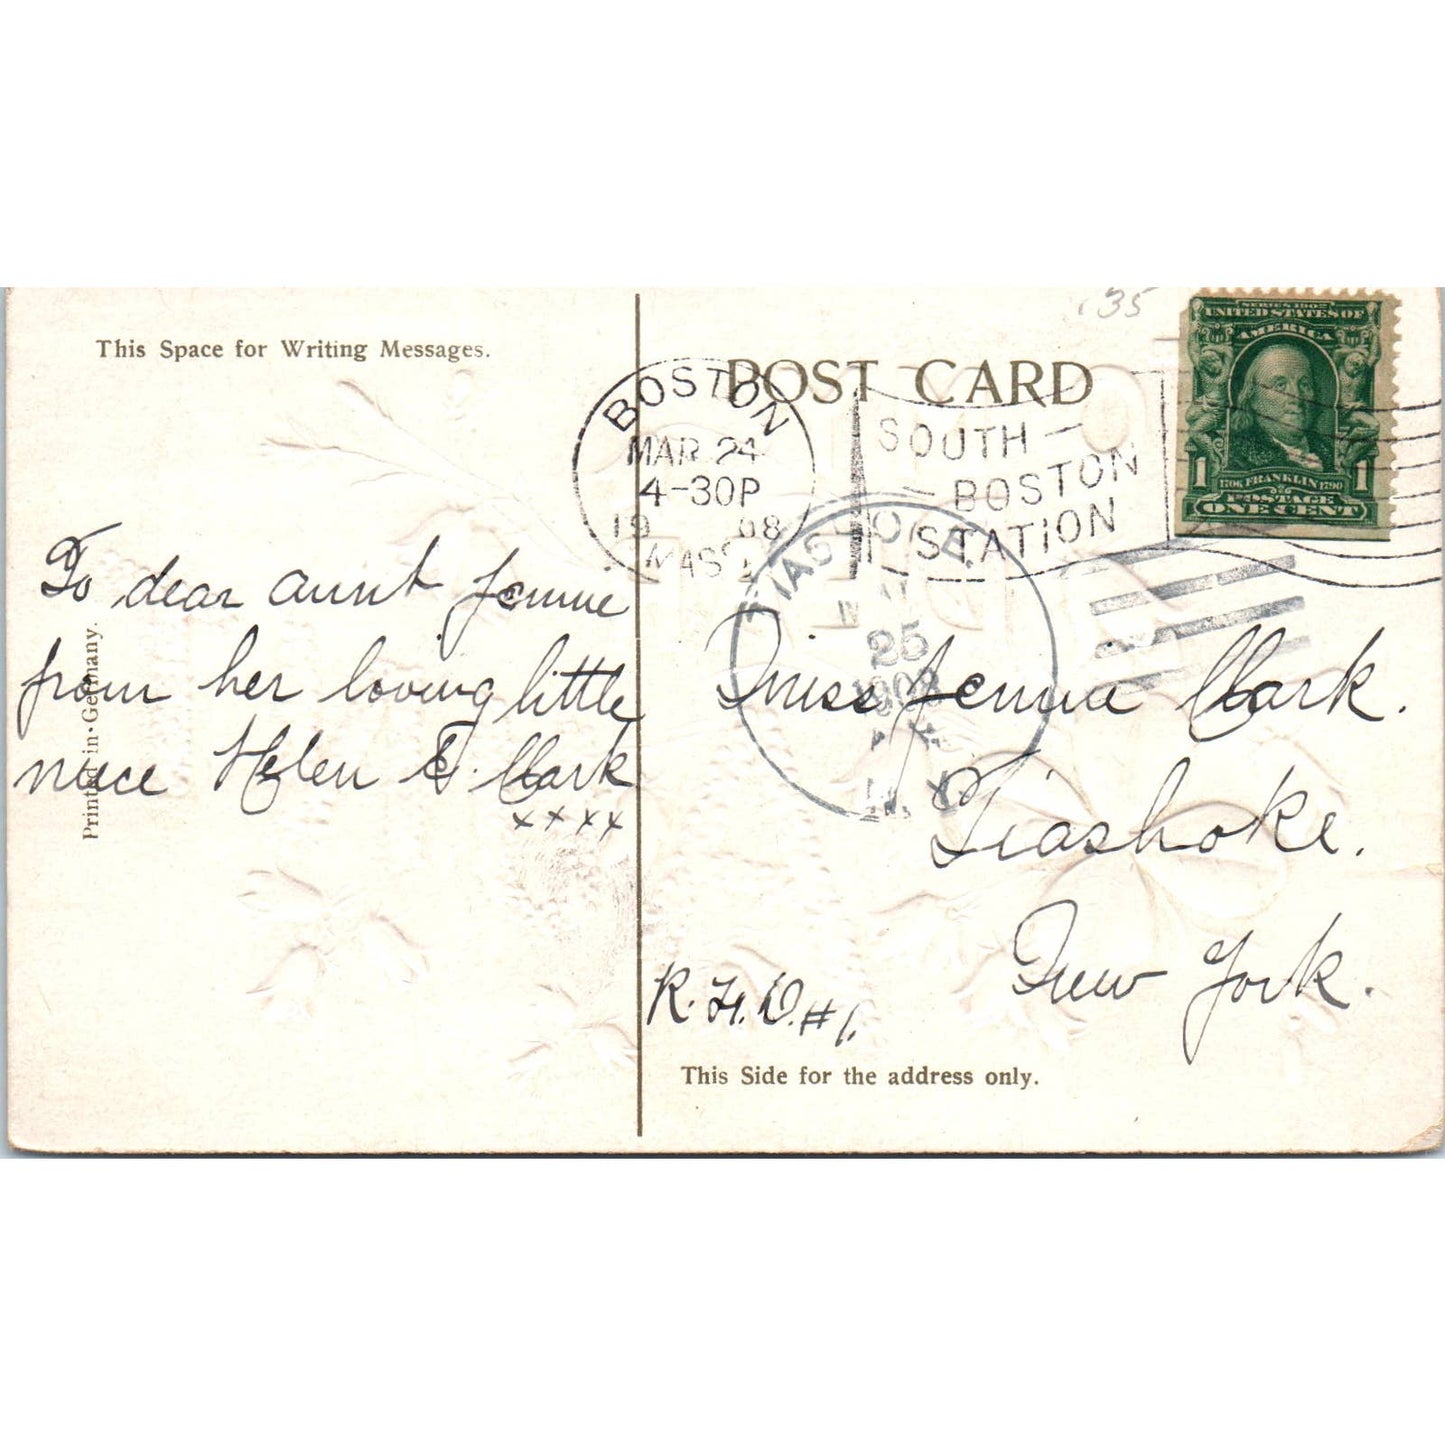 This Space for Writing Messages.
POST CARD
35
SERIES 1902
UNITED STATES OF
AMERICA
1 1
1706 FRANKLIN 1790
POSTAGE
ONE CENT
BOSTON
MAR 24
4-30P
19 08
MASS
SOUTH
BOSTON
STATION
25
1908
To dear aunt Jennie
from her loving little
niece Helen E. Clark
x x x x
Printed in Germany.
Miss Jennie Clark.
Tiashoke.
New York.
R. F. D. #1.
This Side for the address only.